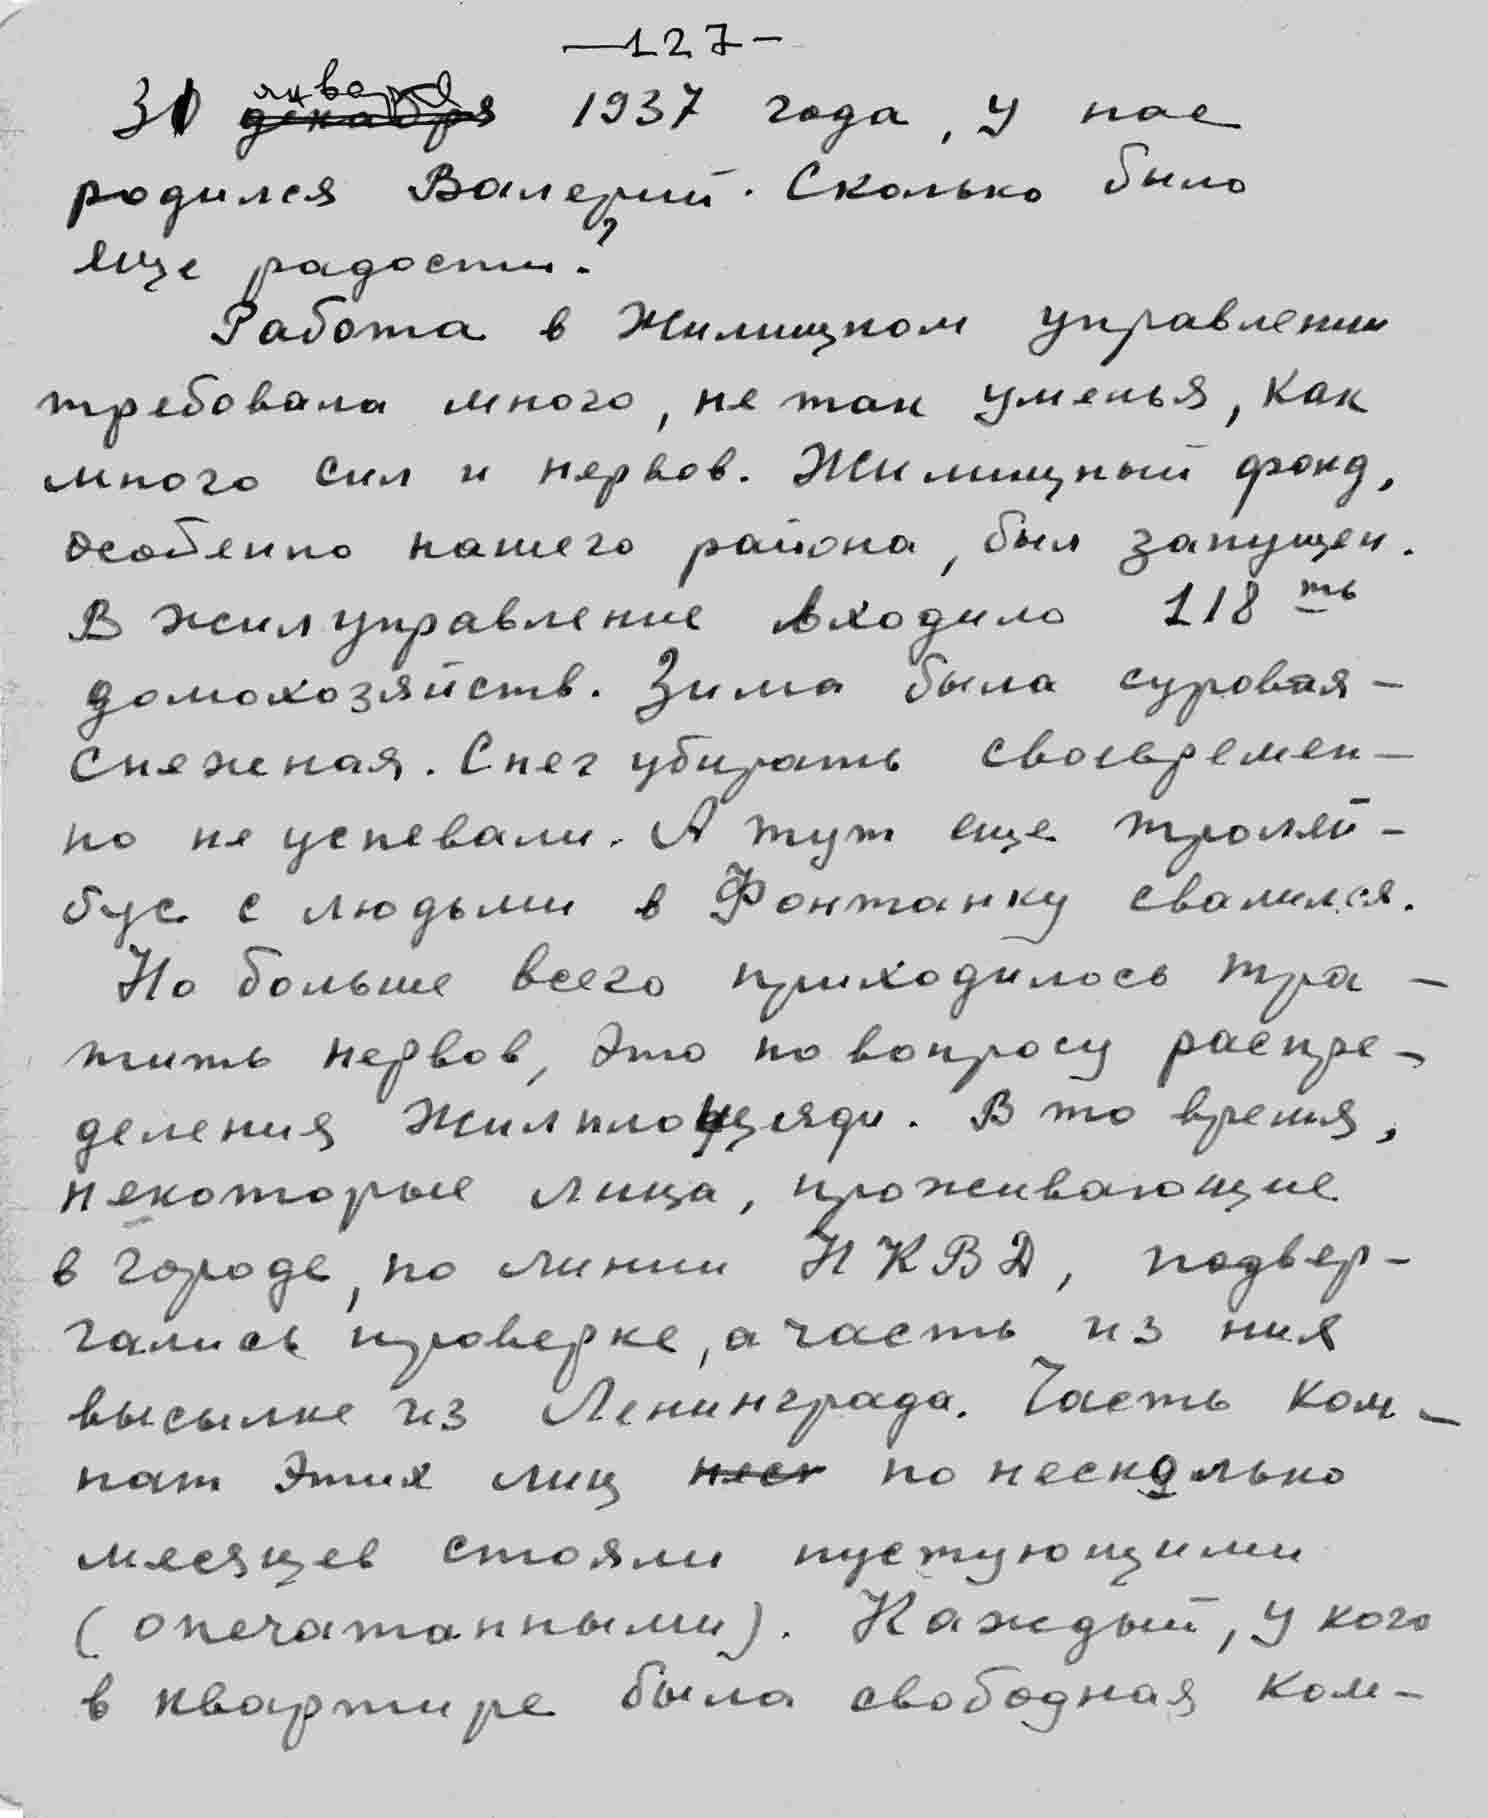 -127-
31 января декабря 1937 года, у нас
родился Валерий. Сколько было
еще радости?
Работа в Жилищном управлении
требовала много, не так уменья, как
много сил и нервов. Жилищный фонд,
особенно нашего района, был запущен.
В жилуправление входило 118 ть
домохозяйств. Зима была суровая -
снежная. Снег убирать своевремен-
но не успевали. А тут еще троллей-
бус с людьми в Фонтанку свалился.
Но больше всего приходилось тра-
тить нервов, это по вопросу распре-
деления жилплощяди. В то время,
некоторые лица, проживающие
в городе, по линии НКВД, подвер-
гались проверке, а часть из них
высылке из Ленинграда. Часть ком-
нат этих лиц неск по несколько
месяцев стояли пустующими
(опечатанными). Каждый, у кого
в квартире была свободная ком-